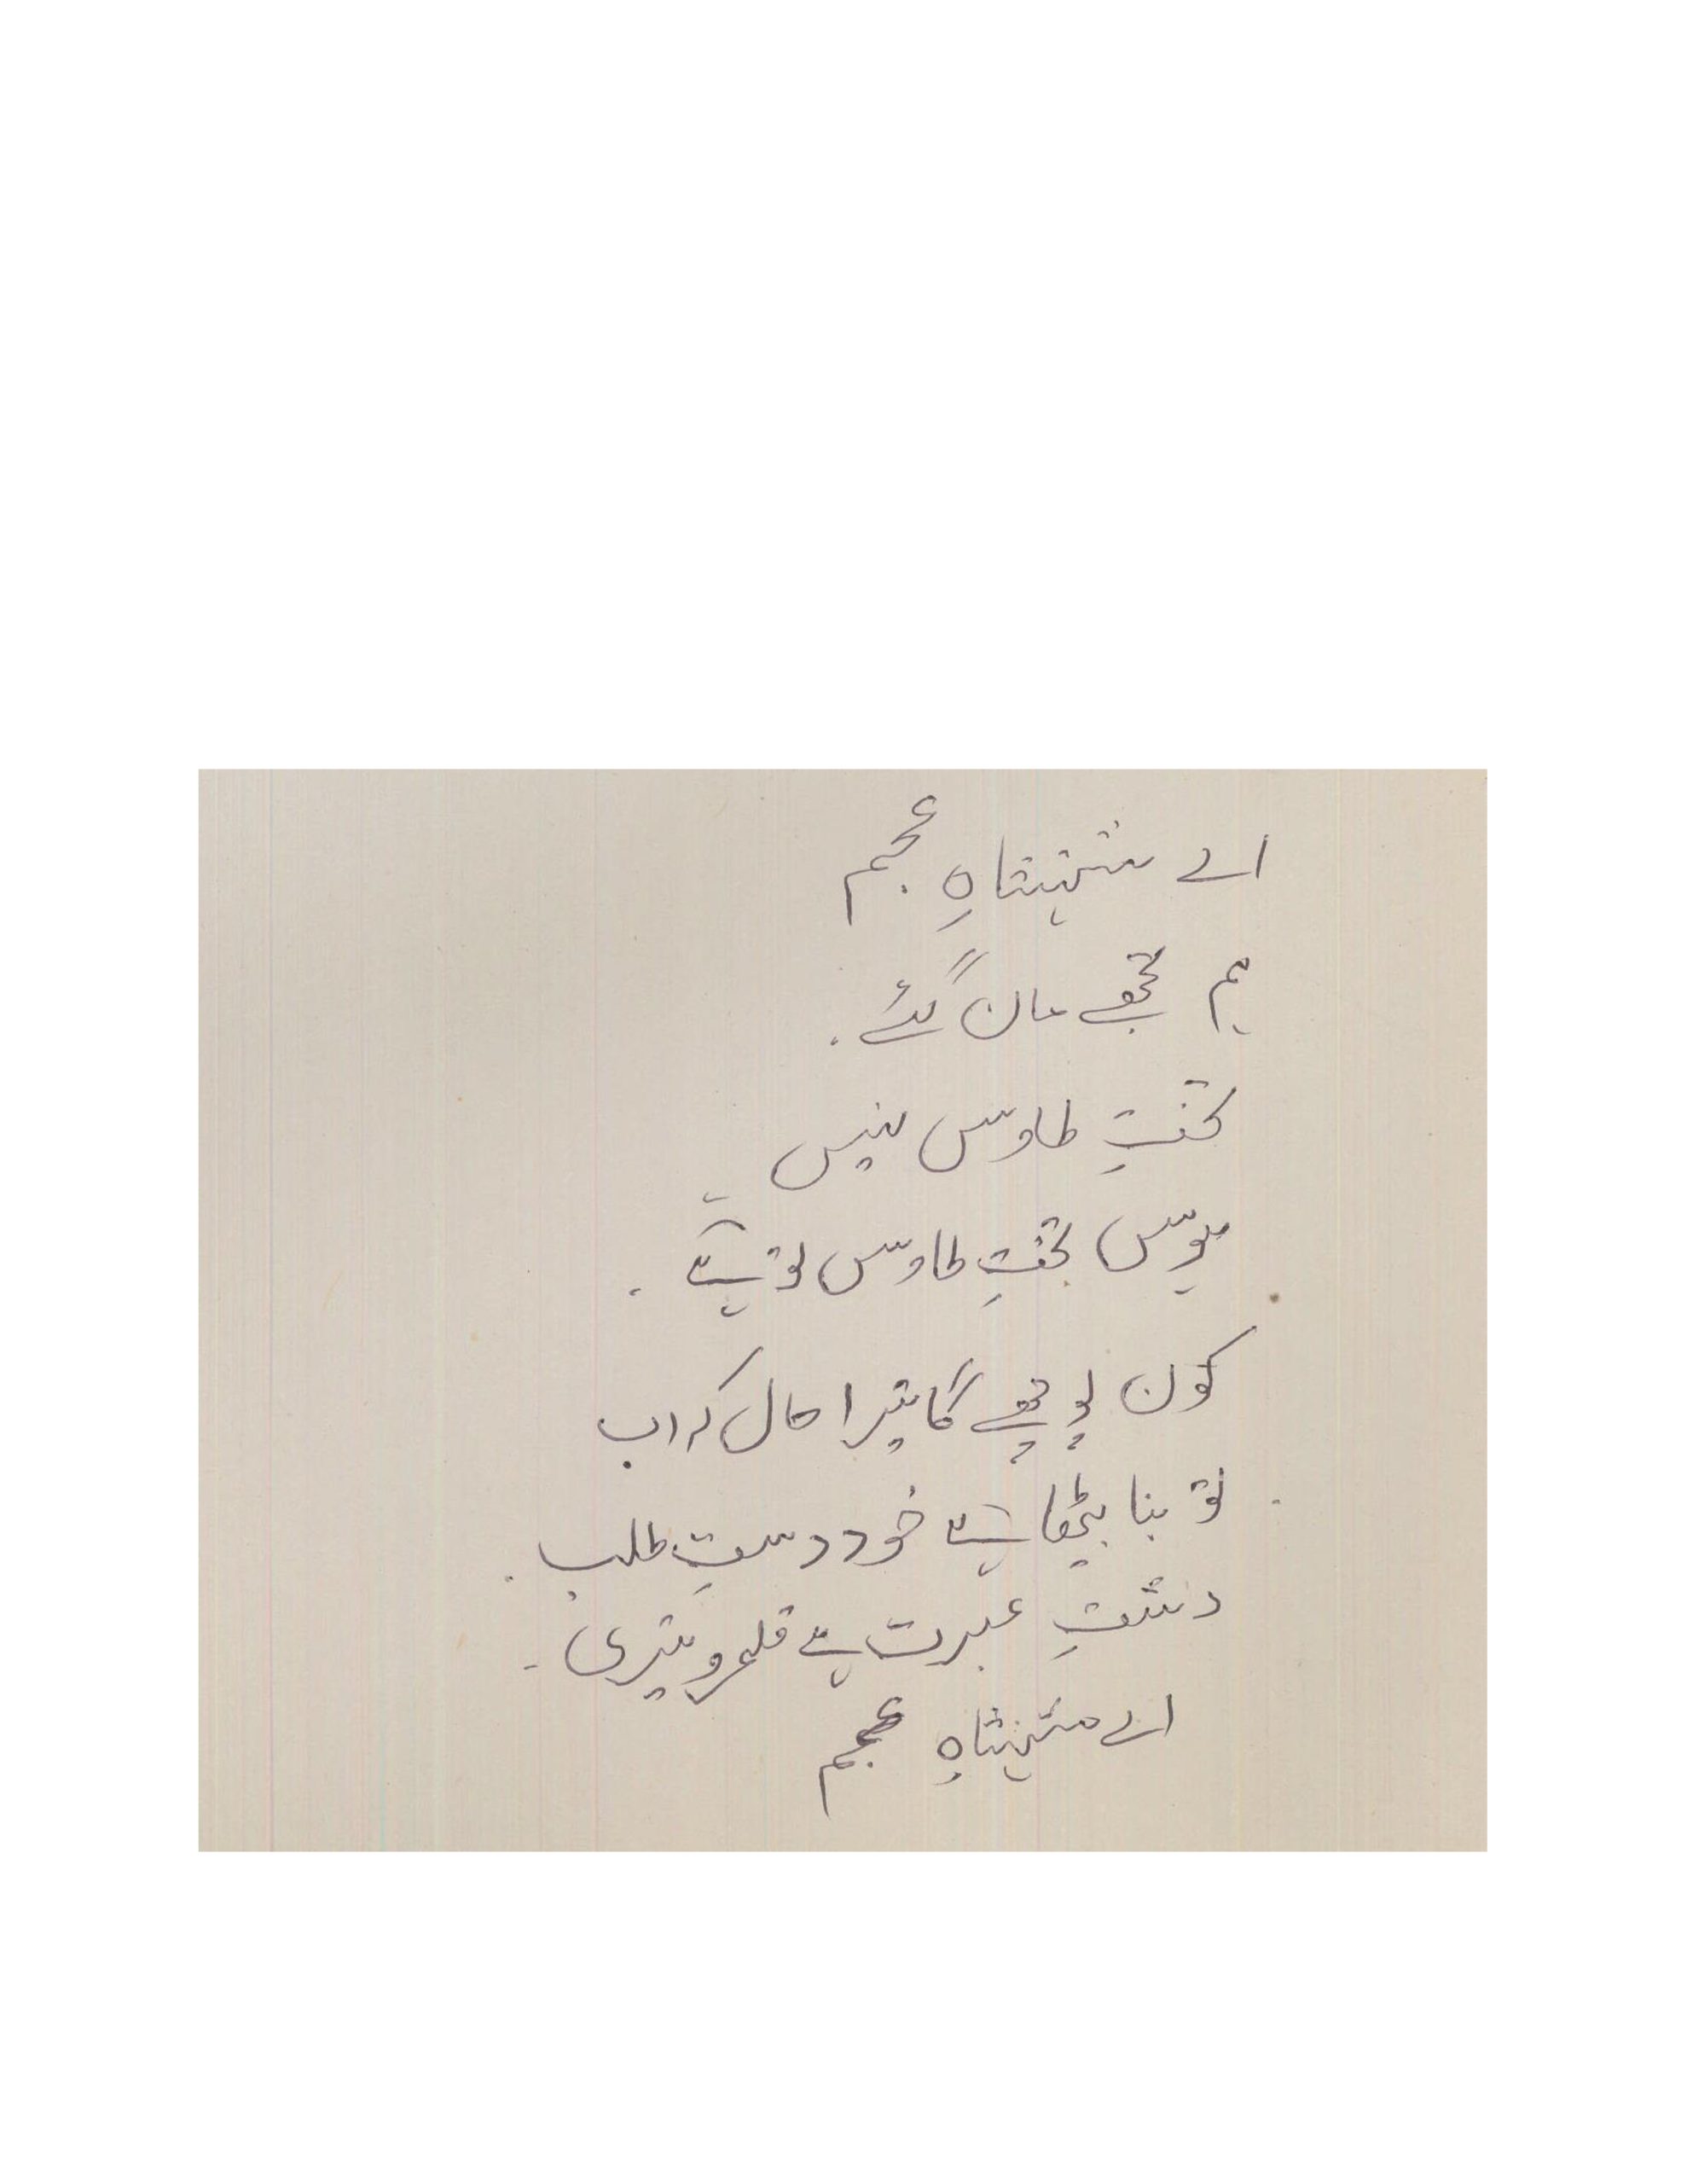 اے شہنشاہِ عجم
ہم تجھے مان گئے۔
تختِ طاوس نہیں
ہوسِ تختِ طاوس تو ہے۔
کون پوچھے گا تیرا حال کہ اب
تو بنا بیٹھا ہے خود دستِ طلب۔
دشتِ عبرت ہے قلمرو تیری۔
اے شہنشاہِ عجم